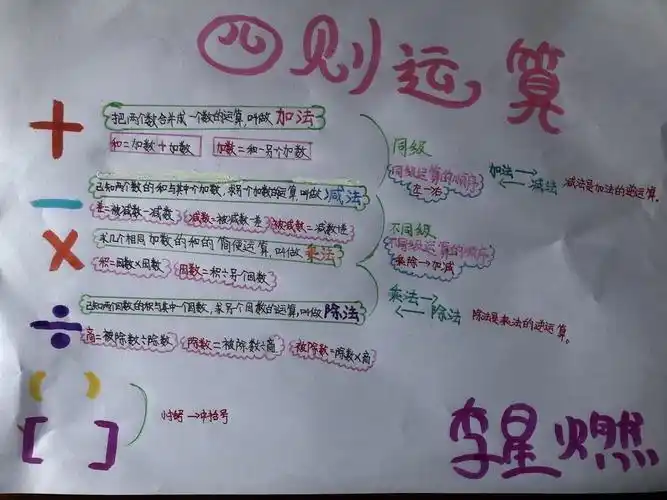 四则运算
+
把两个数合并成一个数的运算,叫做 加法
和=加数+加数 加数=和-另个加数
同级
同级运算的顺序
左→右
加法→
←减法
减法是加法的逆运算。
-
已知两个数的和与其中个加数,求另个加数的运算,叫做 减法
差=被减数-减数 减数=被减数-差 被减数=减数+差
不同级
不同级运算的顺序
乘除→加减
×
求几个相同加数的和的简便运算,叫做 乘法
积=因数×因数 因数=积÷另个因数
乘法→
←除法
除法是乘法的逆运算。
÷
已知两个因数的积与其中一个因数,求另个因数的运算,叫做 除法
商=被除数÷除数 除数=被除数÷商 被除数=除数×商
( )
[ ]
小括号→中括号
李星燃